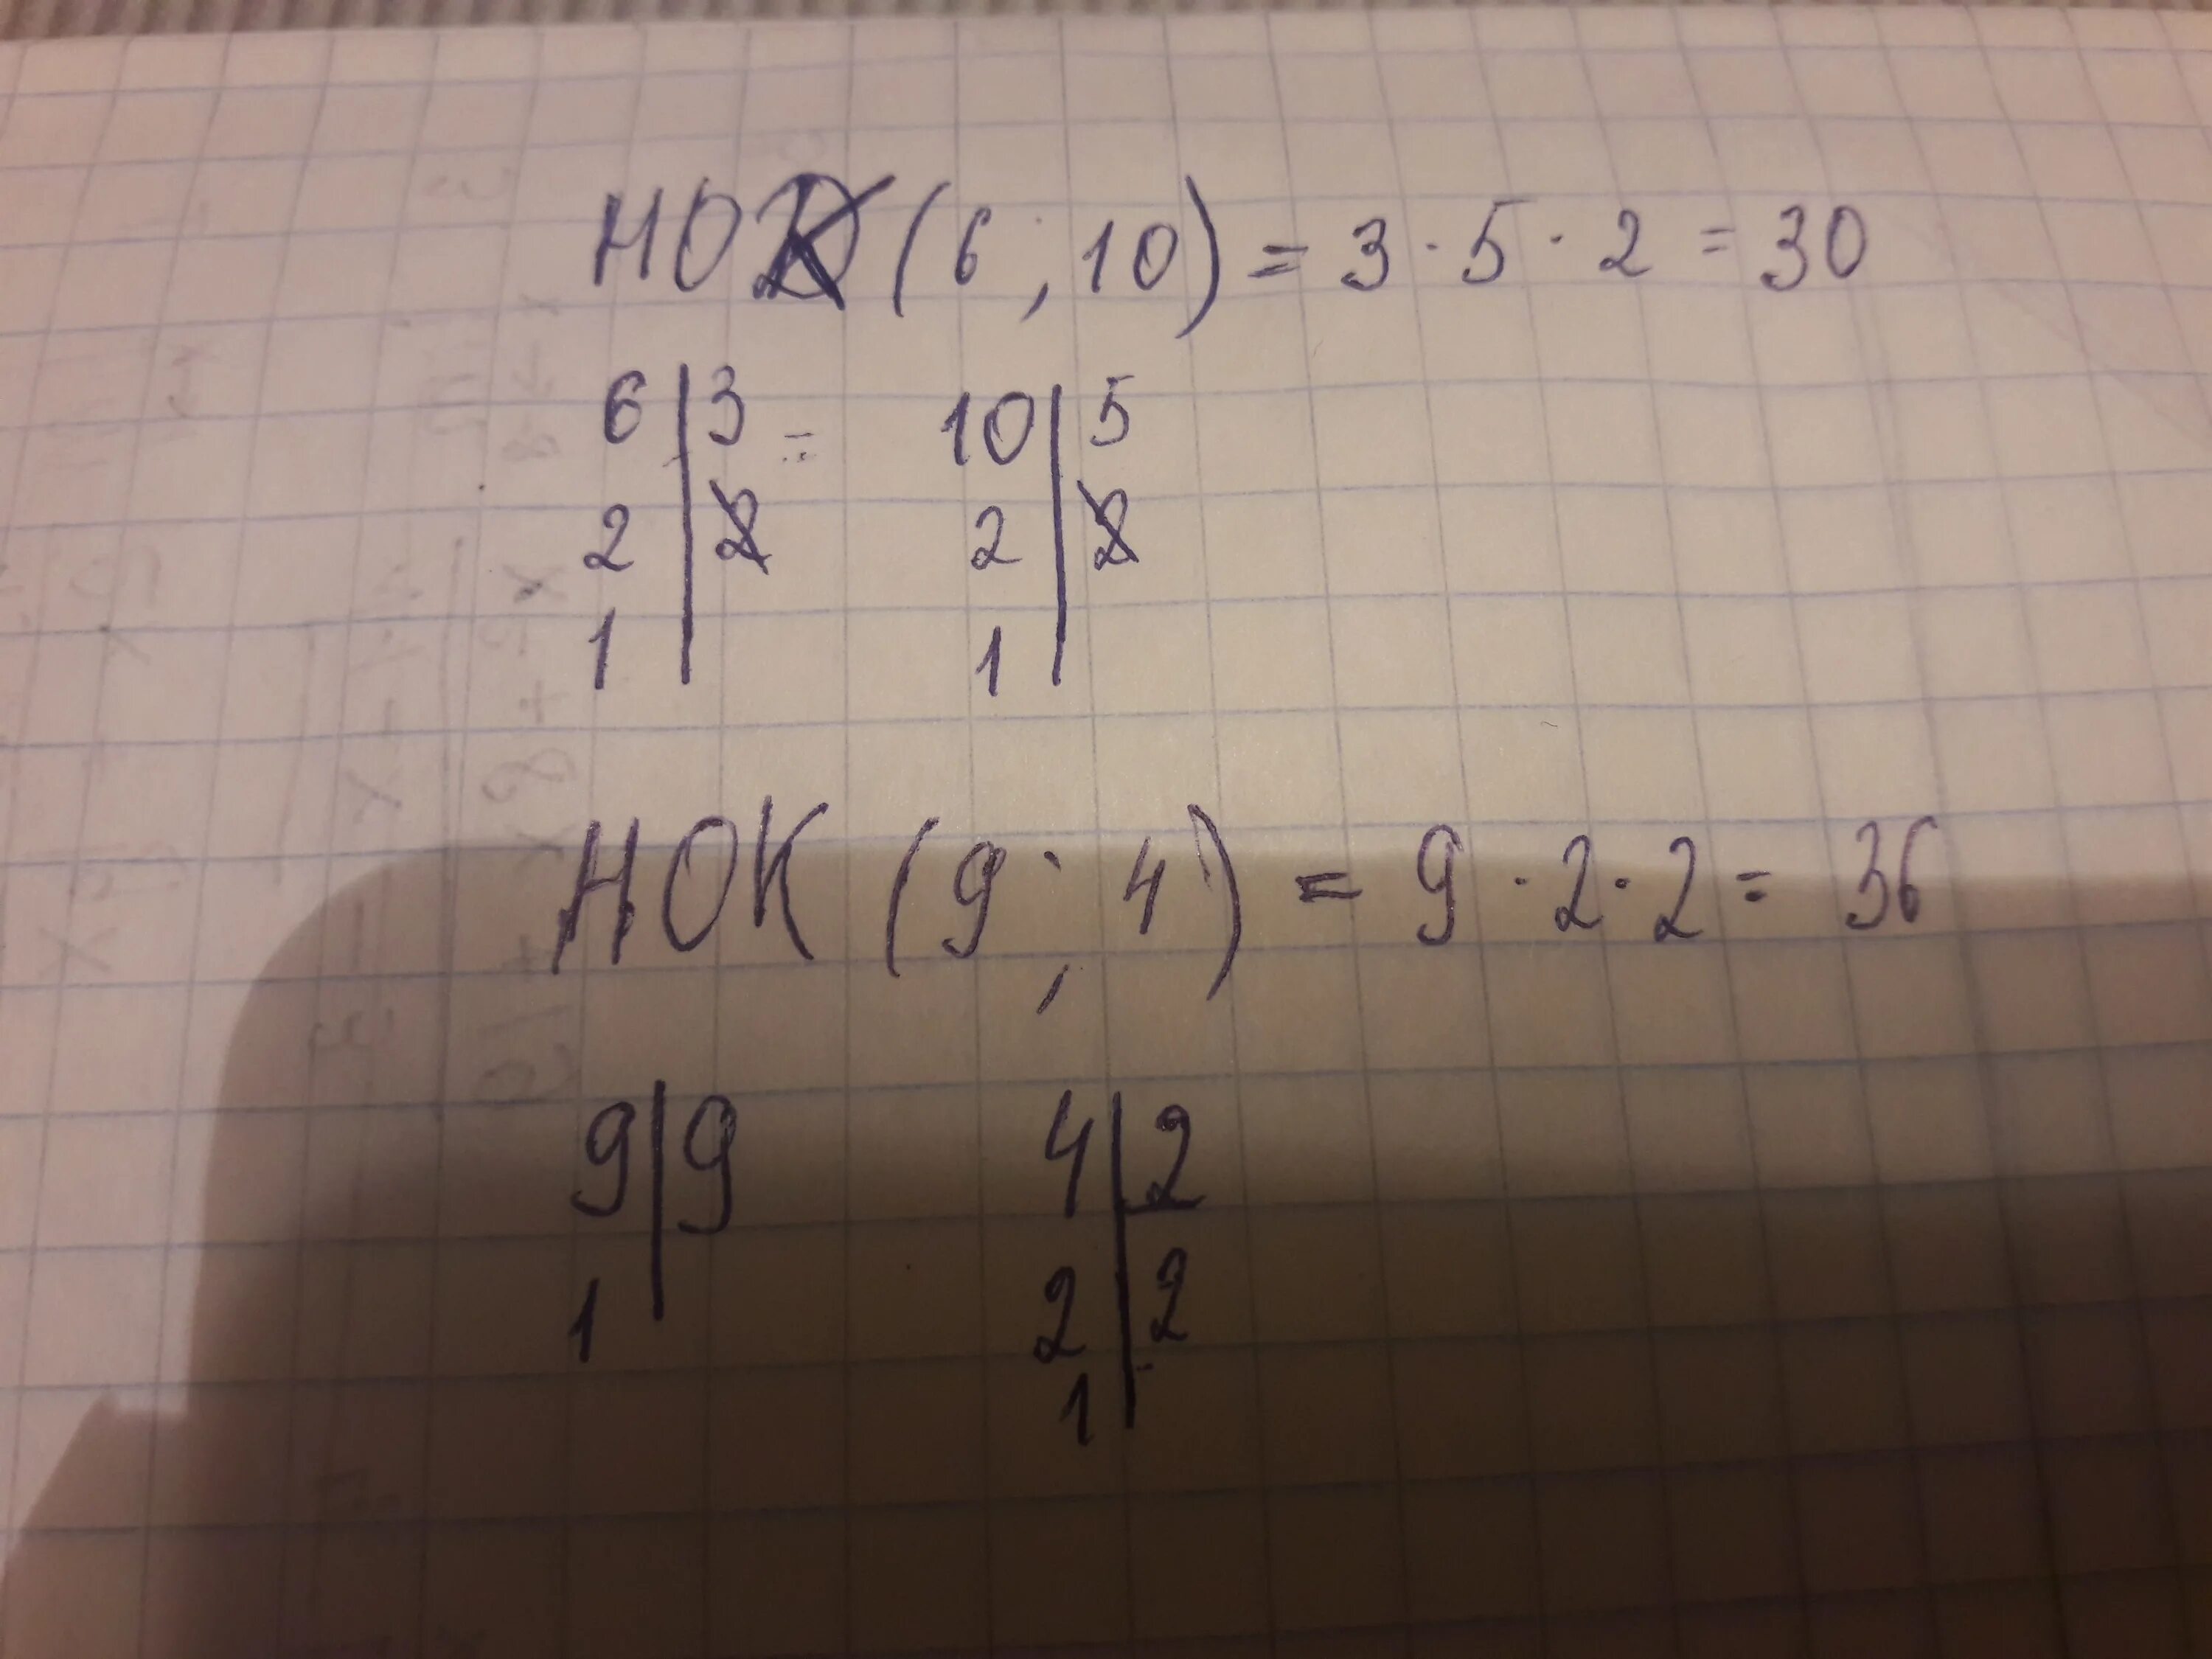 НОК (6; 10) = 3 · 5 · 2 = 30
6 | 3 = 10 | 5
2 | 2 2 | 2
1 | 1 |
НОК (9; 4) = 9 · 2 · 2 = 36
9 | 9 4 | 2
1 | 2 | 2
1 |